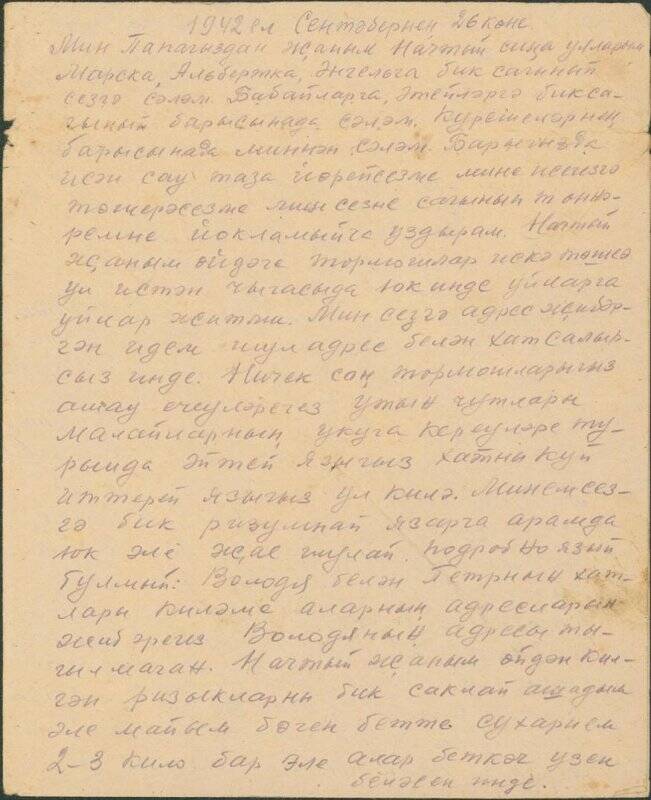 1942 ел Сентәбернең 26 көне
Мин Папагыздан җаным Настый сиңа улларым
Марска, Альбертка, Энгельга бик сагынып
сезгә сәләм. Бабайларга, Әтейләргә бик са-
гынып барысынада сәләм. Курешеләрнең
барысынада миннән сәләм. Барыгызда
исән сау таза йөрейсезме мине исегезгә
төшерәсезме мин сезне сагынып төннә-
ремне йокламыйча уздырам. Настый
җаным өйдәге тормошлар искә төшсә
ул истән чыгасыда юк инде уйларга
уйлар җитми. Мин сезгә адрес җибәр-
гән идем шул адрес белән хат салыр-
сыз инде. Ничек соң тормошларыгыз
ашау эчеүләрегез утын чутлары
малайларның укуга кереүләре ту-
рында әйтеп языгыз хатны күп
иттереп языгыз ул килә. Минем сез-
гә бик язарга арамда
юк эле җае шулай. подробно языи
булмый: Володя белән Петрның хат-
лары киләме аларның адресларын
җибәрегез Володяның адресы ты-
гылмаган. Настый җаным өйдән кил-
гән ризыкларны бик саклап ашадым
эле майым бөген бетте сухарием
2-3 кило бар эле алар беткәч узең
беләсең инде.